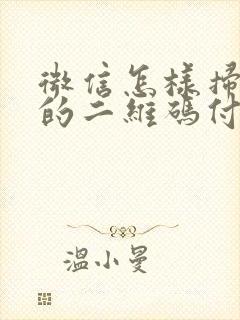 微信怎樣掃
的二維碼付
溫小曼